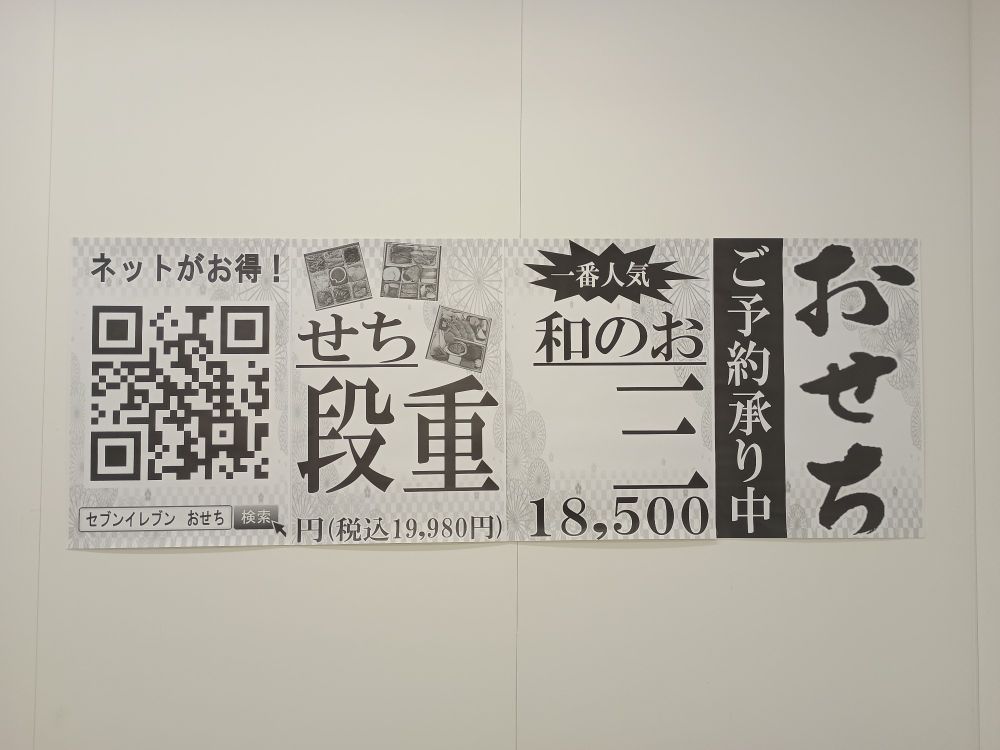 おせち
ご予約承り中
一番人気
和のお
三
18,500
せち
段重
円(税込19,980円)
ネットがお得！
セブンイレブン おせち
検索